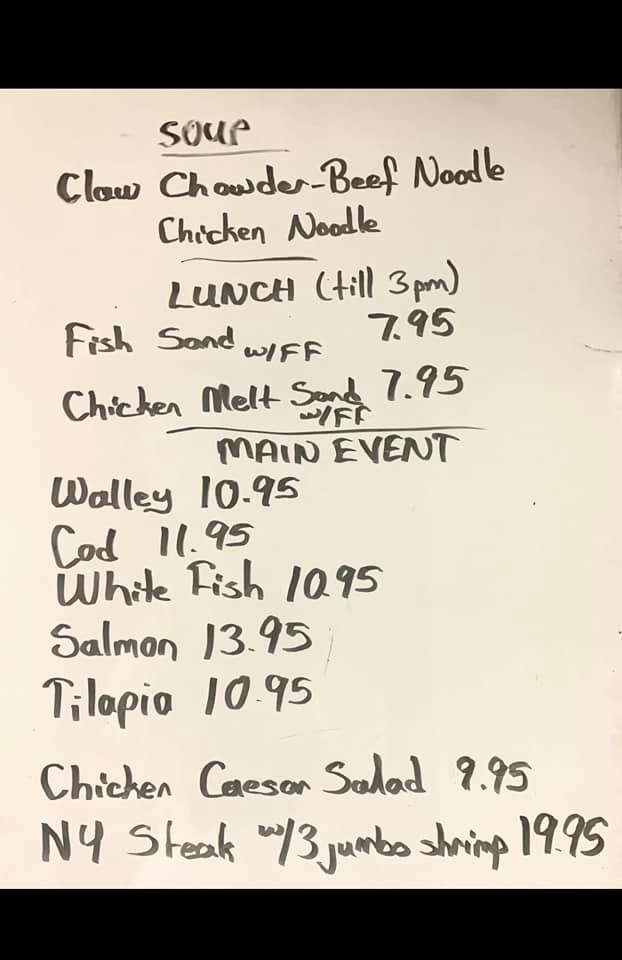 SOUP
Claw Chowder-Beef Noodle
Chicken Noodle
LUNCH (till 3pm)
Fish Sand w/FF 7.95
Chicken Melt Sand w/FF 7.95
MAIN EVENT
Walley 10.95
Cod 11.95
White Fish 10.95
Salmon 13.95
Tilapia 10.95
Chicken Caesar Salad 9.95
NY Steak w/3 jumbo shrimp 19.95